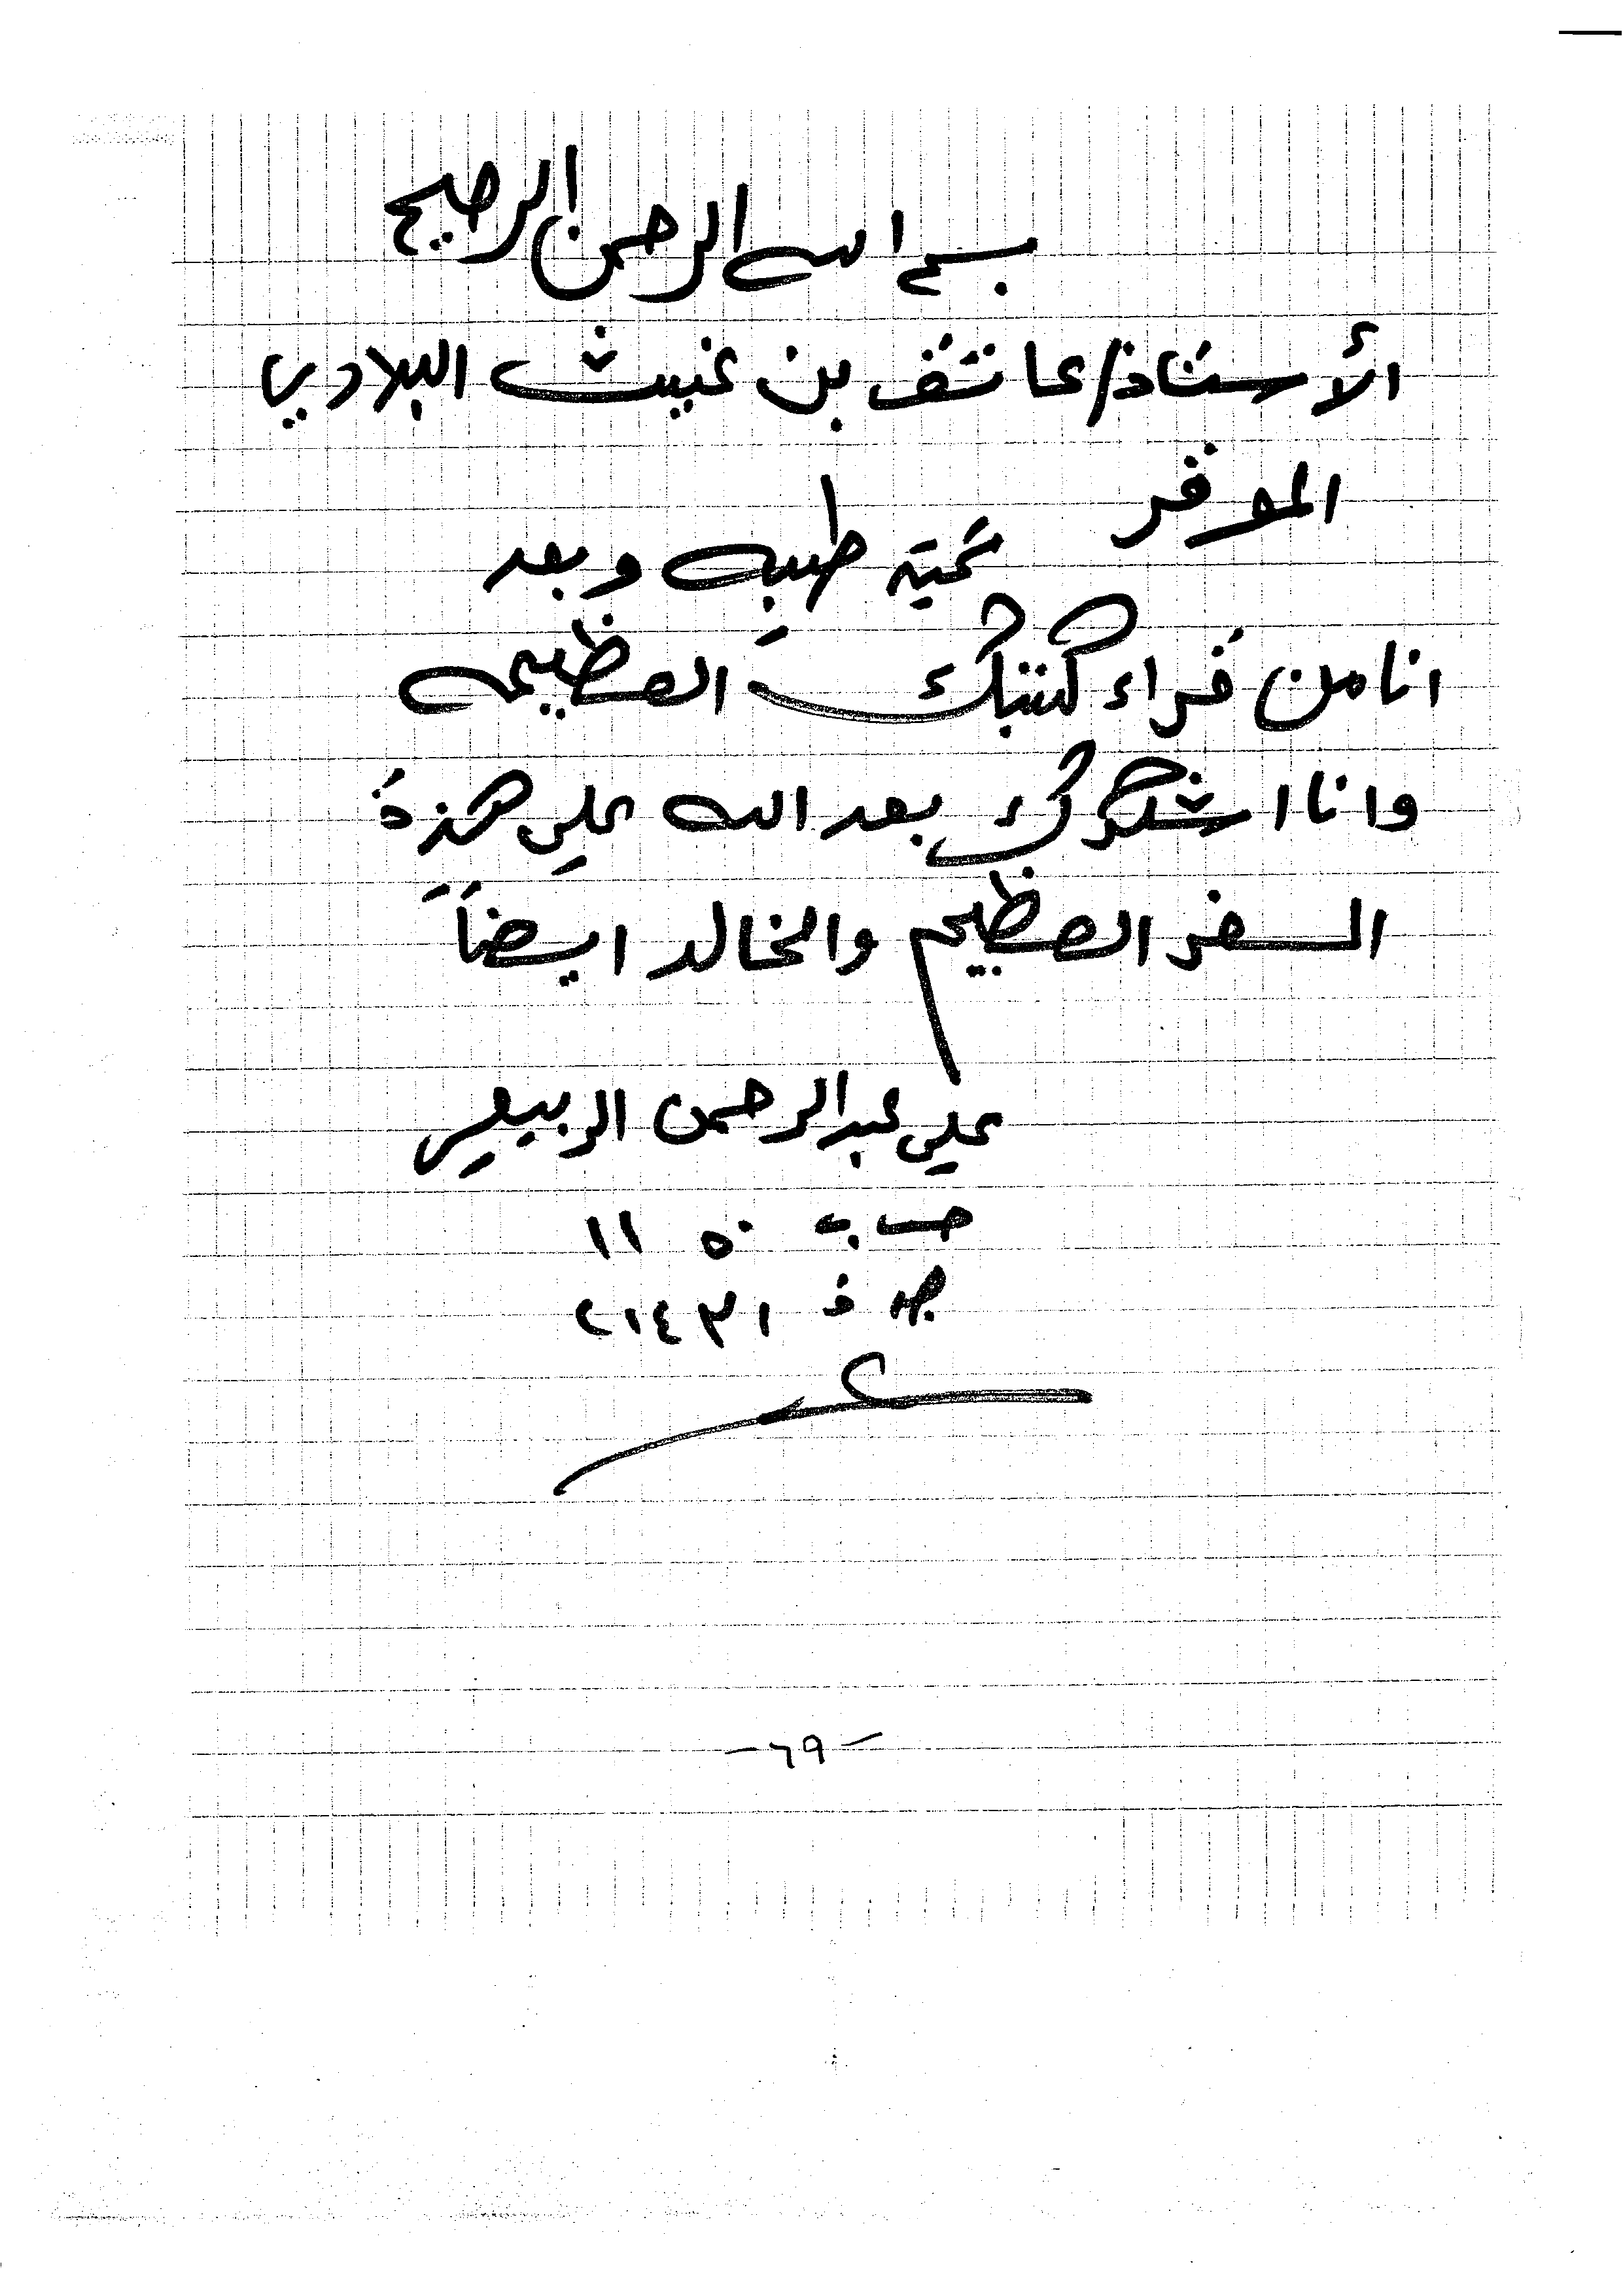 بسم الله الرحمن الرحيم
الأستاذ/ عاتق بن غيث البلادي
الموقر
تحية طيبه وبعد
انا من قراء كتبك العظيمه
وانا اشكرك بعد الله على هذة
السفر العظيم والخالد ايضاً
علي عبدالرحمن الربيعي
ص ب ٥٠ ١١
جدة ٢١٤٣١
-٦٩-